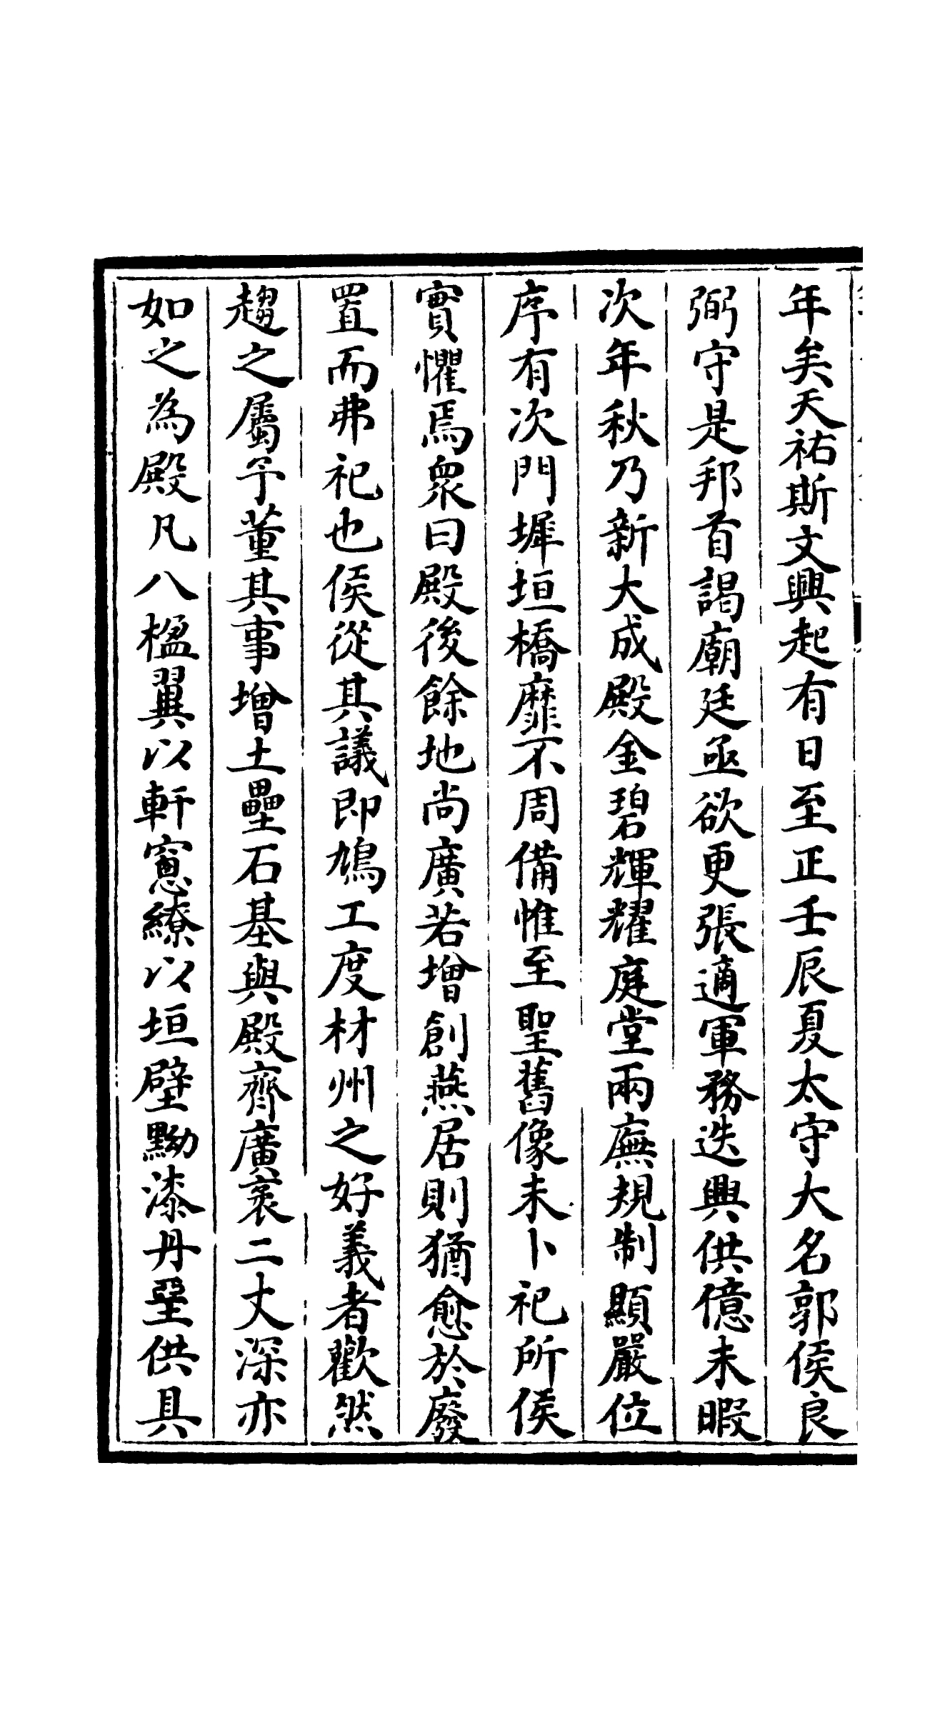 年矣天祐斯文興起有日至正壬辰夏太守大名郭侯良
弼守是邦首謁廟廷亟欲更張適軍務迭興供億未暇
次年秋乃新大成殿金碧輝耀庭堂兩廡規制顯嚴位
序有次門墀垣橋靡不周備惟至聖舊像未卜祀所侯
實懼焉衆曰殿後餘地尚廣若增創燕居則猶愈於廢
置而弗祀也侯從其議即鳩工度材州之好義者歡然
趨之屬予董其事增土壘石基與殿齊廣袤二丈深亦
如之為殿凡八楹翼以軒窻繚以垣壁黝漆丹堊供具